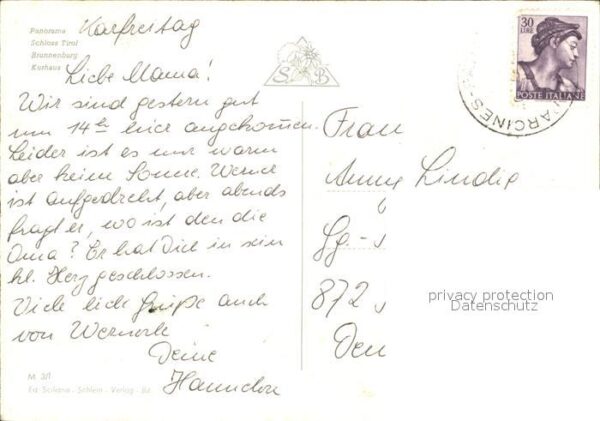 Panorama
Schloss Tirol
Brunnenburg
Kurhaus
Karfreitag
Liebe Mama!
Wir sind gestern gut
um 14h hier angekommen.
Leider ist es nur warm
aber keine Sonne. Werner
ist aufgedreht, aber abends
fragt er, wo ist den die
Oma? Er hat Dich in sein
kl. Herz geschlossen.
Viele lieb Grüße auch
von Wernerle
Deine
Hannelore
M 3/1
S B
30
LIRE
POSTE ITALIANE
PARCINES
Frau
Anny Lindig
872
Deu
privacy protection
Datenschutz